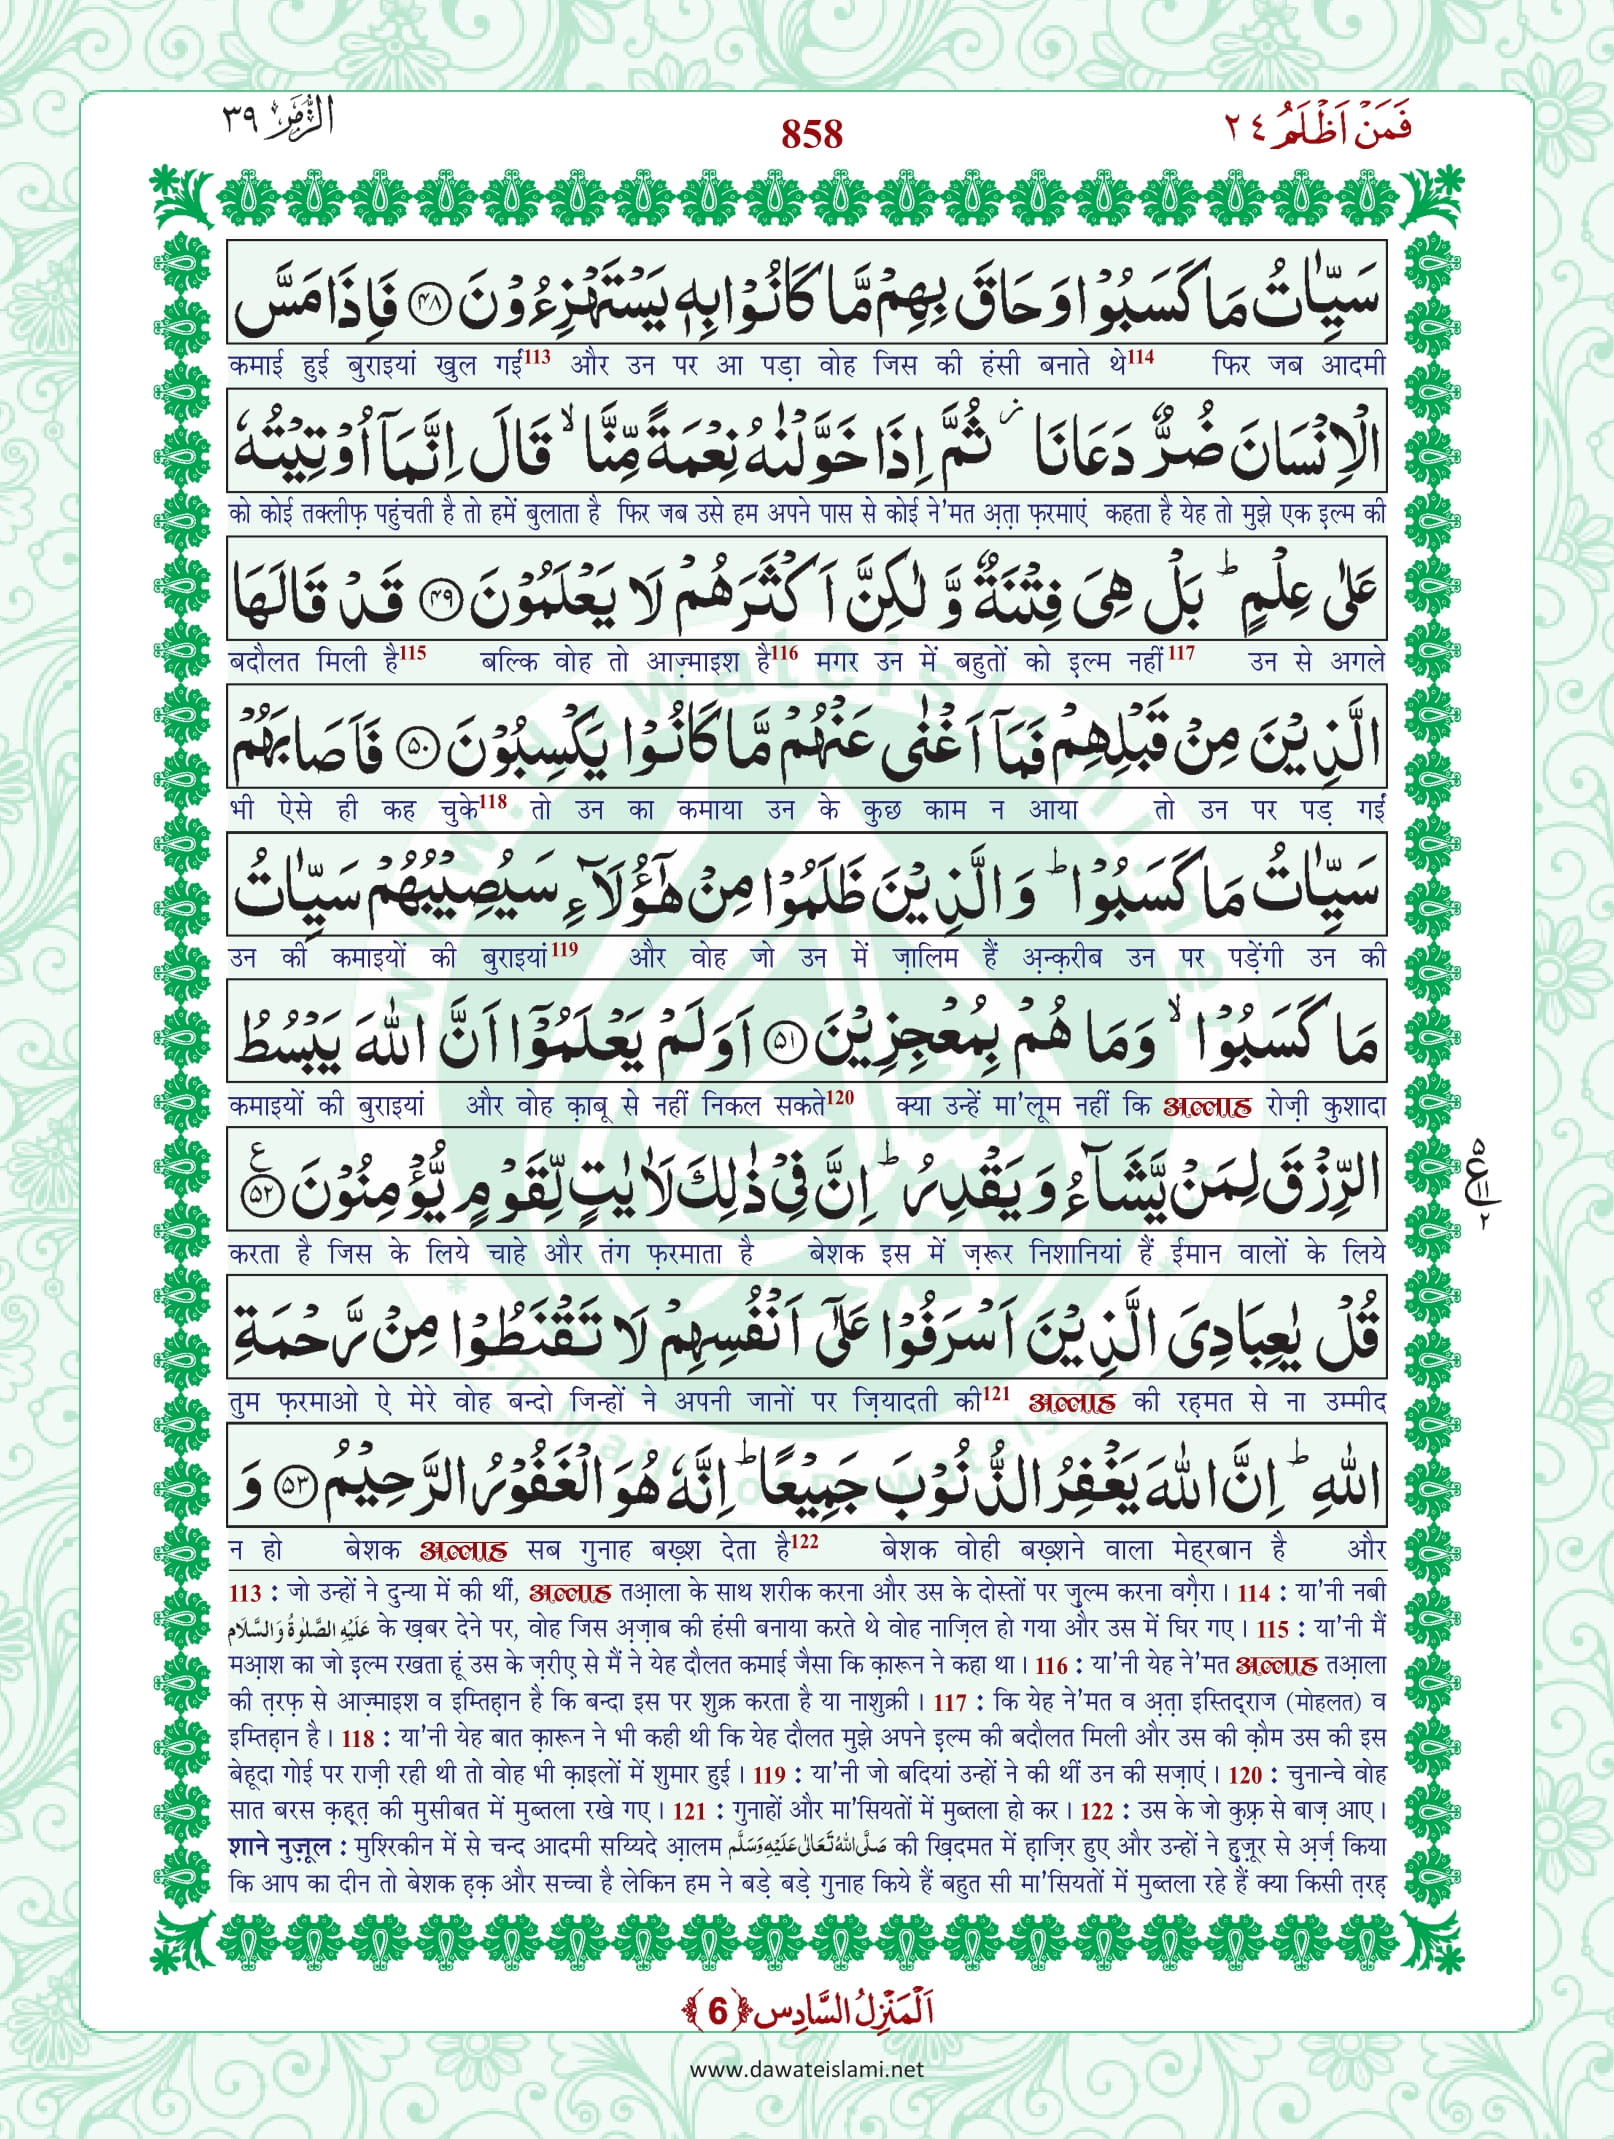 فَمَنْ اَظْلَمُ ٢٤
858
الزُّمَر ٣٩
سَیِّاٰتُ مَا كَسَبُوْا وَ حَاقَ بِهِمْ مَّا كَانُوْا بِهٖ یَسْتَهْزِءُوْنَ ﴿۴۸﴾ فَاِذَا مَسَّ
कमाई हुई बुराइयां खुल गईं113 और उन पर आ पड़ा वोह जिस की हंसी बनाते थे114 फिर जब आदमी
الْاِنْسَانَ ضُرٌّ دَعَانَا ۫ ثُمَّ اِذَا خَوَّلْنٰهُ نِعْمَةً مِّنَّا ۙ قَالَ اِنَّمَاۤ اُوْتِیْتُهٗ
को कोई तक्लीफ़ पहुंचती है तो हमें बुलाता है फिर जब उसे हम अपने पास से कोई ने'मत अ़त़ा फ़रमाएं कहता है येह तो मुझे एक इल्म की
عَلٰى عِلْمٍ ؕ بَلْ هِیَ فِتْنَةٌ وَّ لٰكِنَّ اَكْثَرَهُمْ لَا یَعْلَمُوْنَ ﴿۴۹﴾ قَدْ قَالَهَا
बदौलत मिली है115 बल्कि वोह तो आज़्माइश है116 मगर उन में बहुतों को इल्म नहीं117 उन से अगले
الَّذِیْنَ مِنْ قَبْلِهِمْ فَمَاۤ اَغْنٰى عَنْهُمْ مَّا كَانُوْا یَكْسِبُوْنَ ﴿۵۰﴾ فَاَصَابَهُمْ
भी ऐसे ही कह चुके118 तो उन का कमाया उन के कुछ काम न आया तो उन पर पड़ गईं
سَیِّاٰتُ مَا كَسَبُوْا ؕ وَ الَّذِیْنَ ظَلَمُوْا مِنْ هٰۤؤُلَآءِ سَیُصِیْبُهُمْ سَیِّاٰتُ
उन की कमाइयों की बुराइयां119 और वोह जो उन में ज़ालिम हैं अ़न्क़रीब उन पर पड़ेंगी उन की
مَا كَسَبُوْا ۙ وَ مَا هُمْ بِمُعْجِزِیْنَ ﴿۵۱﴾ اَوَ لَمْ یَعْلَمُوْۤا اَنَّ اللّٰهَ یَبْسُطُ
कमाइयों की बुराइयां और वोह क़ाबू से नहीं निकल सकते120 क्या उन्हें मा'लूम नहीं कि अल्लाह रोज़ी कुशादा
الرِّزْقَ لِمَنْ یَّشَآءُ وَ یَقْدِرُ ؕ اِنَّ فِیْ ذٰلِكَ لَاٰیٰتٍ لِّقَوْمٍ یُّؤْمِنُوْنَ ﴿۵۲﴾ ع
۵ ع ۱۱ ۲
करता है जिस के लिये चाहे और तंग फ़रमाता है बेशक इस में ज़रूर निशानियां हैं ईमान वालों के लिये
قُلْ یٰعِبَادِیَ الَّذِیْنَ اَسْرَفُوْا عَلٰۤى اَنْفُسِهِمْ لَا تَقْنَطُوْا مِنْ رَّحْمَةِ
तुम फ़रमाओ ऐ मेरे वोह बन्दो जिन्हों ने अपनी जानों पर ज़ियादती की121 अल्लाह की रह़मत से ना उम्मीद
اللّٰهِ ؕ اِنَّ اللّٰهَ یَغْفِرُ الذُّنُوْبَ جَمِیْعًا ؕ اِنَّهٗ هُوَ الْغَفُوْرُ الرَّحِیْمُ ﴿۵۳﴾ وَ
न हो बेशक अल्लाह सब गुनाह बख़्श देता है122 बेशक वोही बख़्शने वाला मेह्रबान है और
113 : जो उन्हों ने दुन्या में की थीं, अल्लाह तआ़ला के साथ शरीक करना और उस के दोस्तों पर ज़ुल्म करना वग़ैरा । 114 : या'नी नबी
عَلَیْهِ الصَّلٰوةُ وَالسَّلَام के ख़बर देने पर, वोह जिस अ़ज़ाब की हंसी बनाया करते थे वोह नाज़िल हो गया और उस में घिर गए । 115 : या'नी मैं
मआ़श का जो इल्म रखता हूं उस के ज़रीए से मैं ने येह दौलत कमाई जैसा कि क़ारून ने कहा था । 116 : या'नी येह ने'मत अल्लाह तआ़ला
की त़रफ़ से आज़्माइश व इम्तिह़ान है कि बन्दा इस पर शुक्र करता है या नाशुक्री । 117 : कि येह ने'मत व अ़त़ा इस्तिद्राज (मोहलत) व
इम्तिह़ान है । 118 : या'नी येह बात क़ारून ने भी कही थी कि येह दौलत मुझे अपने इल्म की बदौलत मिली और उस की क़ौम उस की इस
बेहूदा गोई पर राज़ी रही थी तो वोह भी क़ाइलों में शुमार हुई । 119 : या'नी जो बदियां उन्हों ने की थीं उन की सज़ाएं । 120 : चुनान्चे वोह
सात बरस क़ह़त़ की मुसीबत में मुब्तला रखे गए । 121 : गुनाहों और मा'सियतों में मुब्तला हो कर । 122 : उस के जो कुफ़्र से बाज़ आए ।
शाने नुज़ूल : मुश्रिकीन में से चन्द आदमी सय्यिदे आ़लम صَلَّى اللّٰهُ تَعَالٰى عَلَیْهِ وَسَلَّم की ख़िदमत में ह़ाज़िर हुए और उन्हों ने हु़ज़ूर से अ़र्ज़ किया
कि आप का दीन तो बेशक ह़क़ और सच्चा है लेकिन हम ने बड़े बड़े गुनाह किये हैं बहुत सी मा'सियतों में मुब्तला रहे हैं क्या किसी त़रह़
اَلْمَنْزِلُ السَّادِس ﴿6﴾
www.dawateislami.net